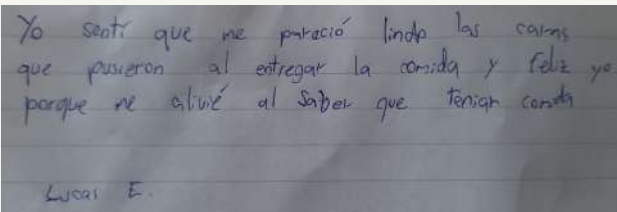 Yo sentí que me pareció lindo las caras
que pusieron al entregar la comida y feliz yo
porque me alivié al saber que tenian comida
Lucas E.